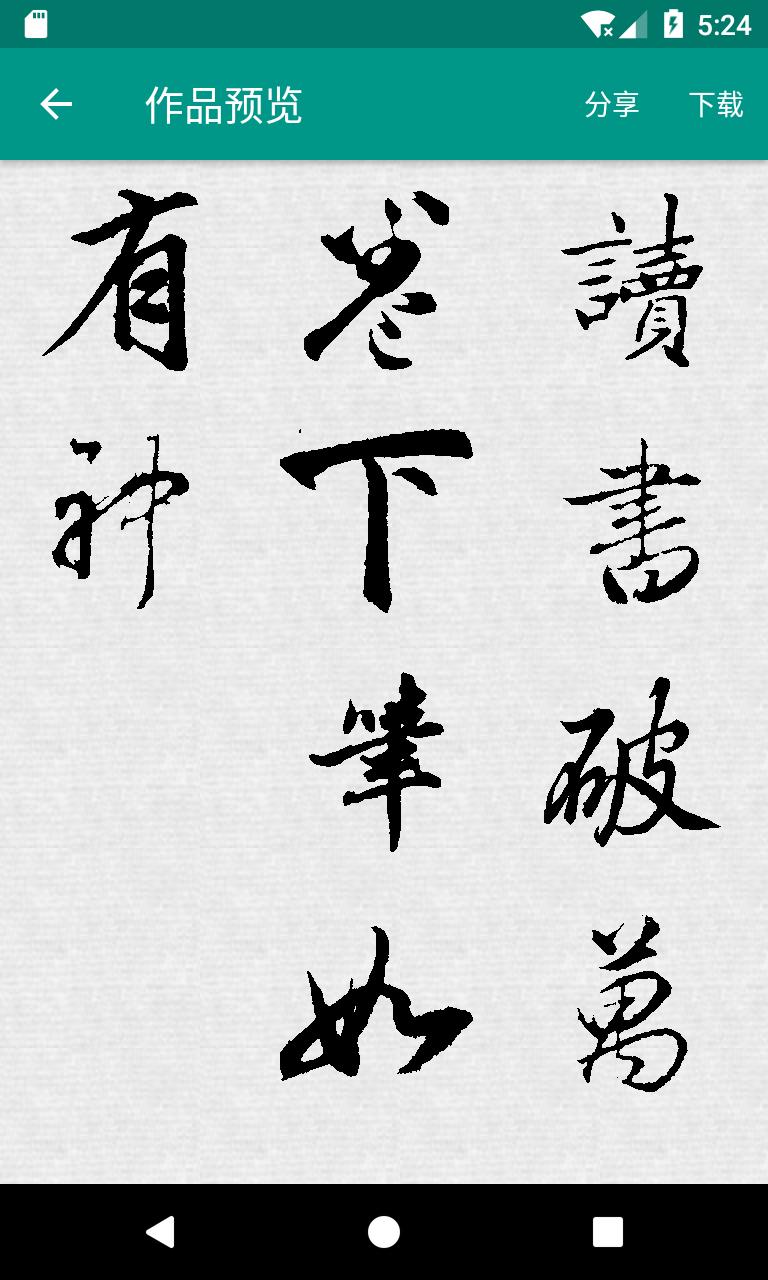 5:24
作品预览 分享 下载
讀書破萬
卷下筆如
有神